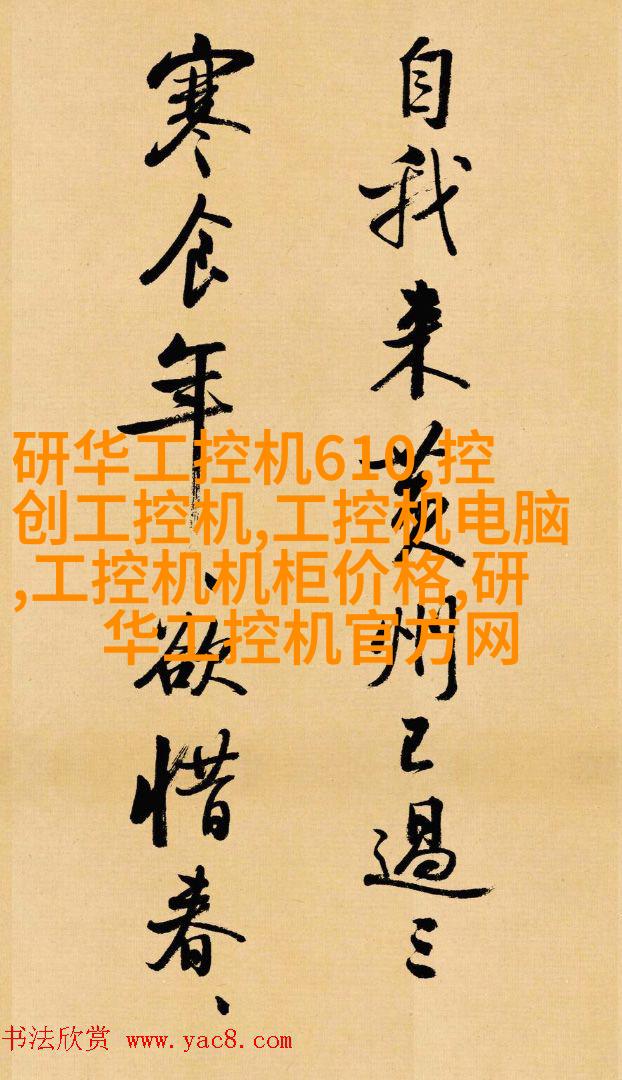 自我来黄州已過三
寒食年、欲惜春、
研华工控机610,控
创工控机,工控机电脑
,工控机机柜价格,研
华工控机官方网
书法欣赏 www.yac8.com